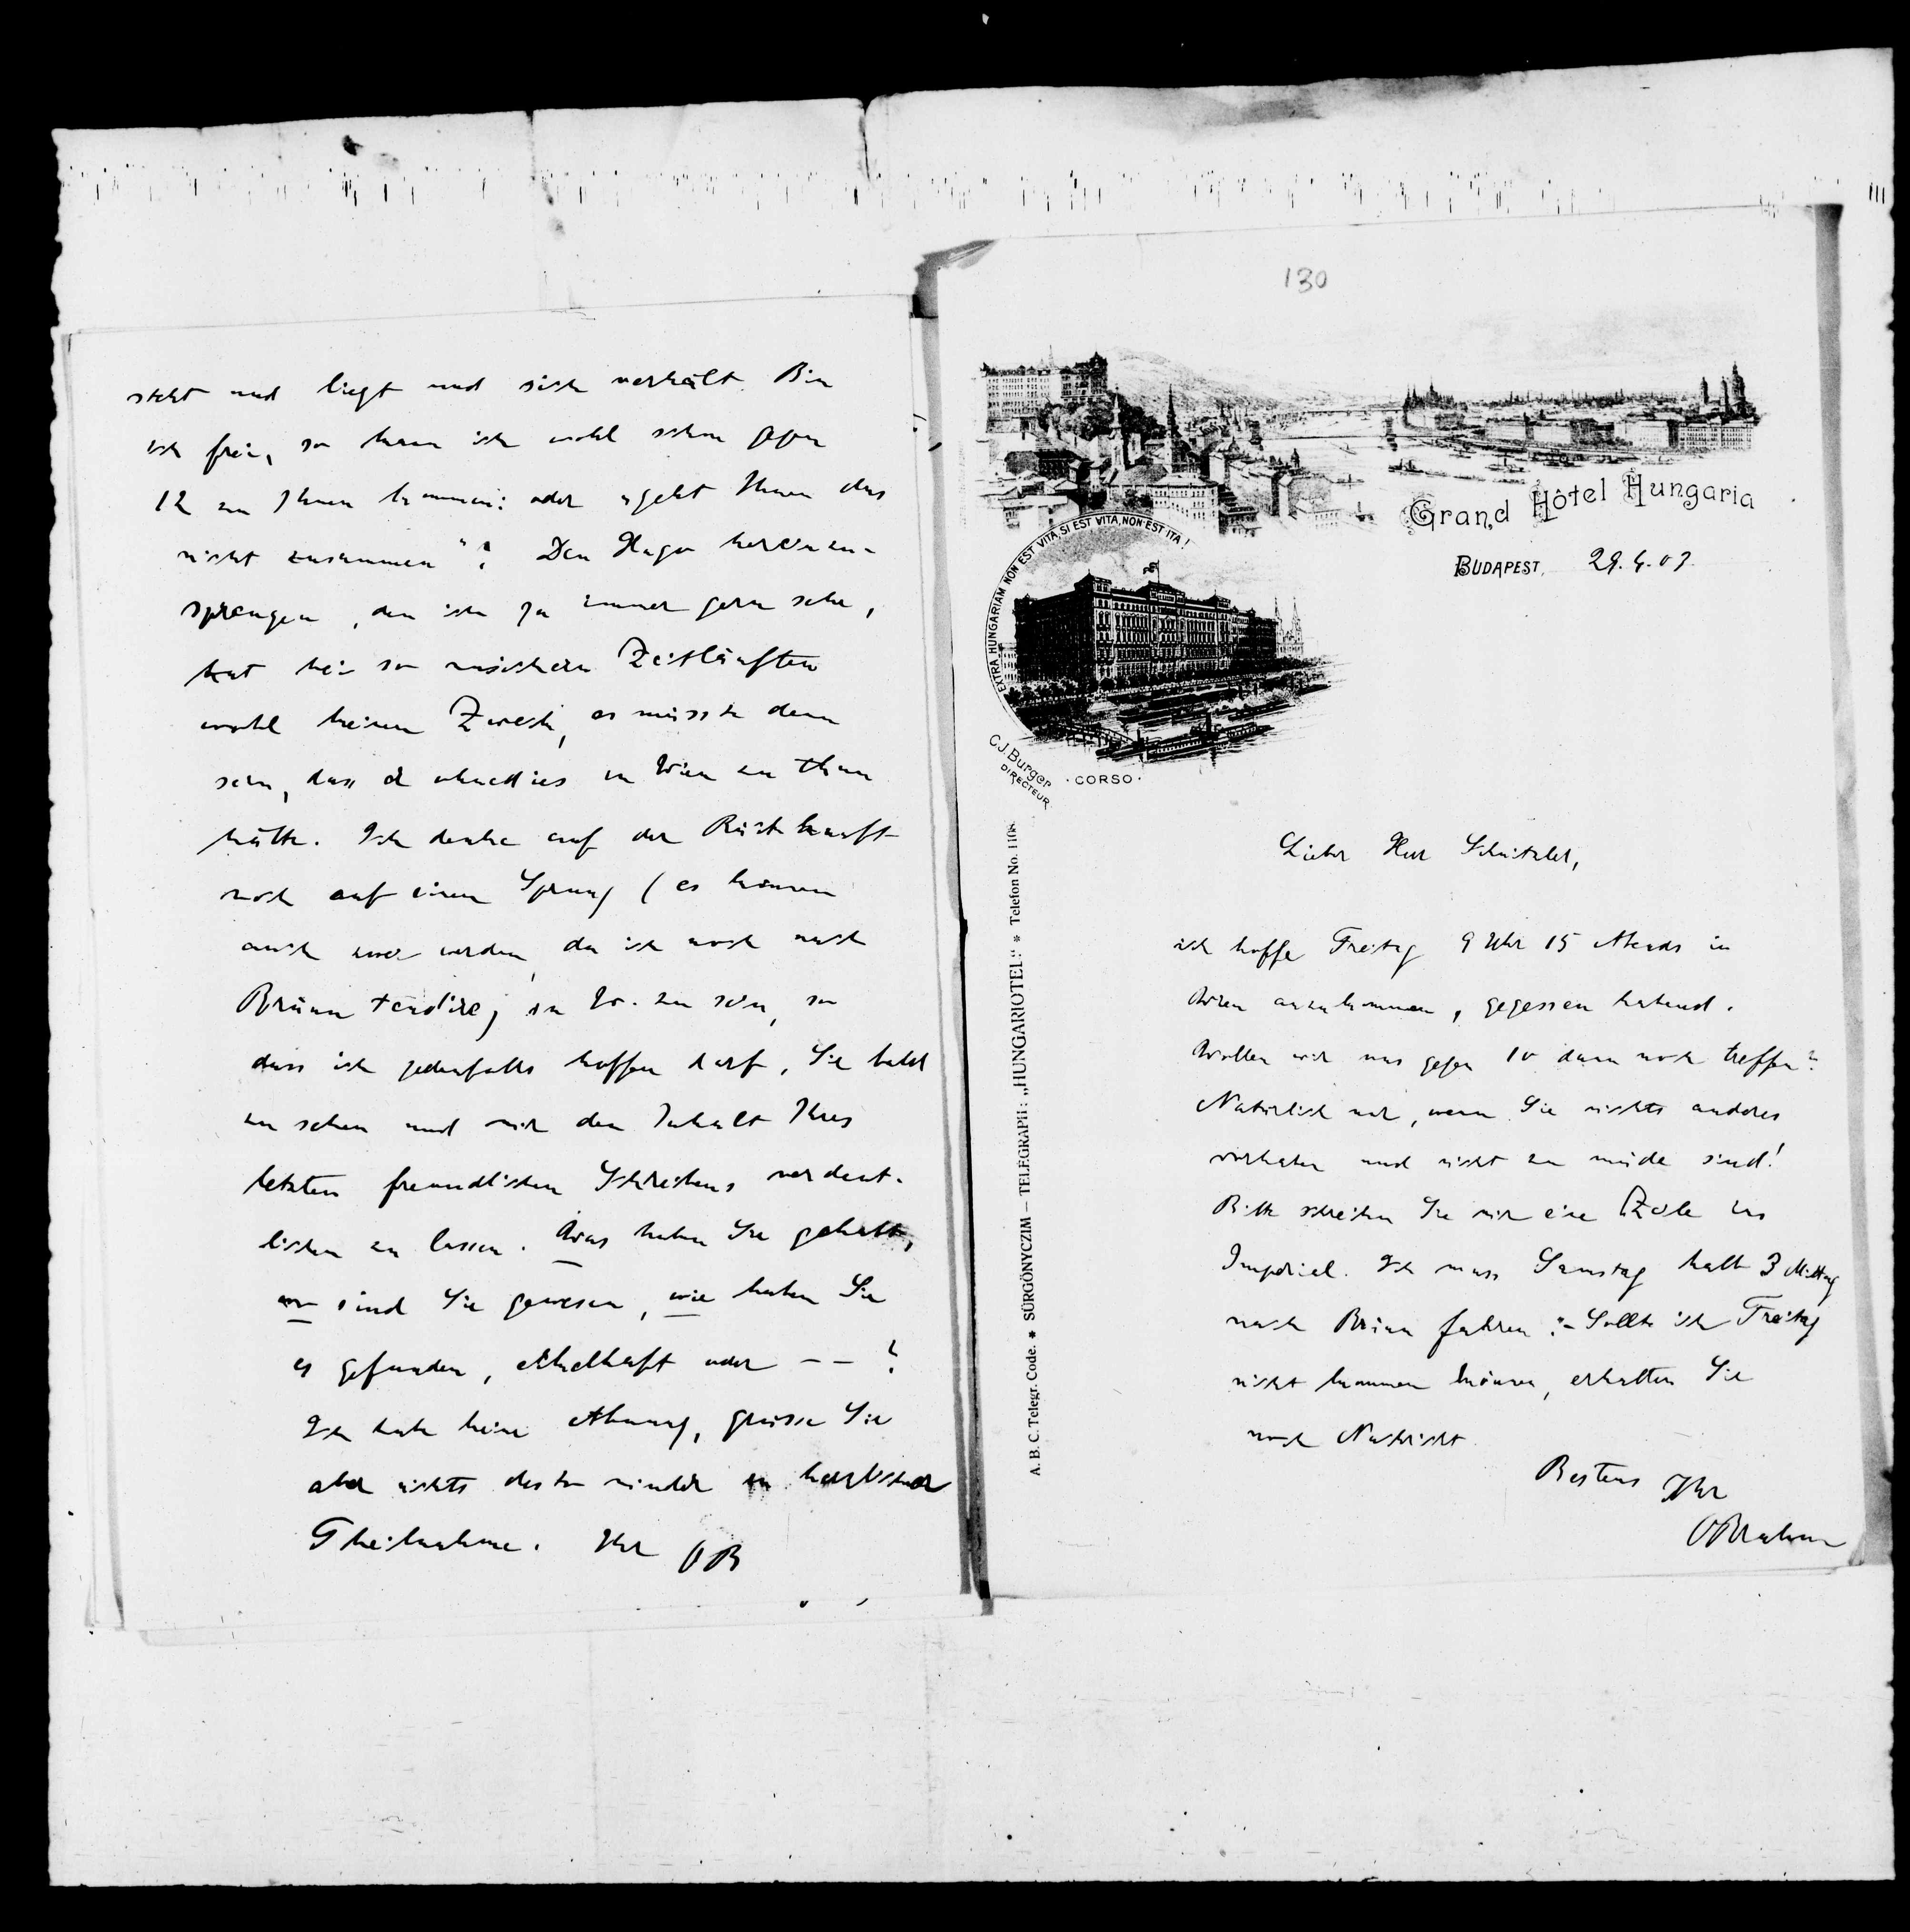 steht und liegt und sich verhält. Bin
ich frei, so kann ich wohl schon gegen
12 zu Ihnen kommen: oder „geht Ihnen das
nicht zusammen“? Den Hugo hereinzu-
sprengen, den ich ja immer gern sehe,
hat bei so unsichern Zeitläuften
wohl keinen Zweck, es müsste denn
sein, dass er ohnedies in Wien zu thun
hätte. Ich denke auf der Rückkunft
noch auf einen Sprung (es können
auch zwei werden, da ich noch nach
Brünn tendire) in W. zu sein, so
dass ich jedenfalls hoffen darf, Sie bald
zu sehen und mir den Inhalt Ihres
letzten freundlichen Schreibens verdeut-
lichen zu lassen. Was haben Sie gehabt,
wo sind Sie gewesen, wie haben Sie
es gefunden, ekelhaft oder – – ?
Ich habe keine Ahnung, grüsse Sie
aber nichts desto minder in herzlicher
Theilnahme. Ihr OB
130
EXTRA HUNGARIAM NON EST VITA, SI EST VITA, NON EST ITA!
Grand Hôtel Hungaria
BUDAPEST, 29.4.07.
C.J. Burger
DIRECTEUR
·CORSO·
A. B. C. Telegr. Code. * SÜRGÖNYCZIM – TELEGRAPH: „HUNGARIOTEL“ * Telefon No. 1108
Lieber Herr Schnitzler,
ich hoffe Freitag 9 Uhr 15 Abends in
Wien anzukommen, gegessen habend.
Wollen wir uns gegen 10 dann noch treffen?
Natürlich nur, wenn Sie nichts anderes
vorhaben und nicht zu müde sind!
Bitte schreiben Sie mir eine Zeile ins
Imperial. Ich muss Samstag halb 3 Mittag
nach Brünn fahren :– Sollte ich Freitag
nicht kommen können, erhalten Sie
noch Nachricht.
Bestens Ihr
OBrahm